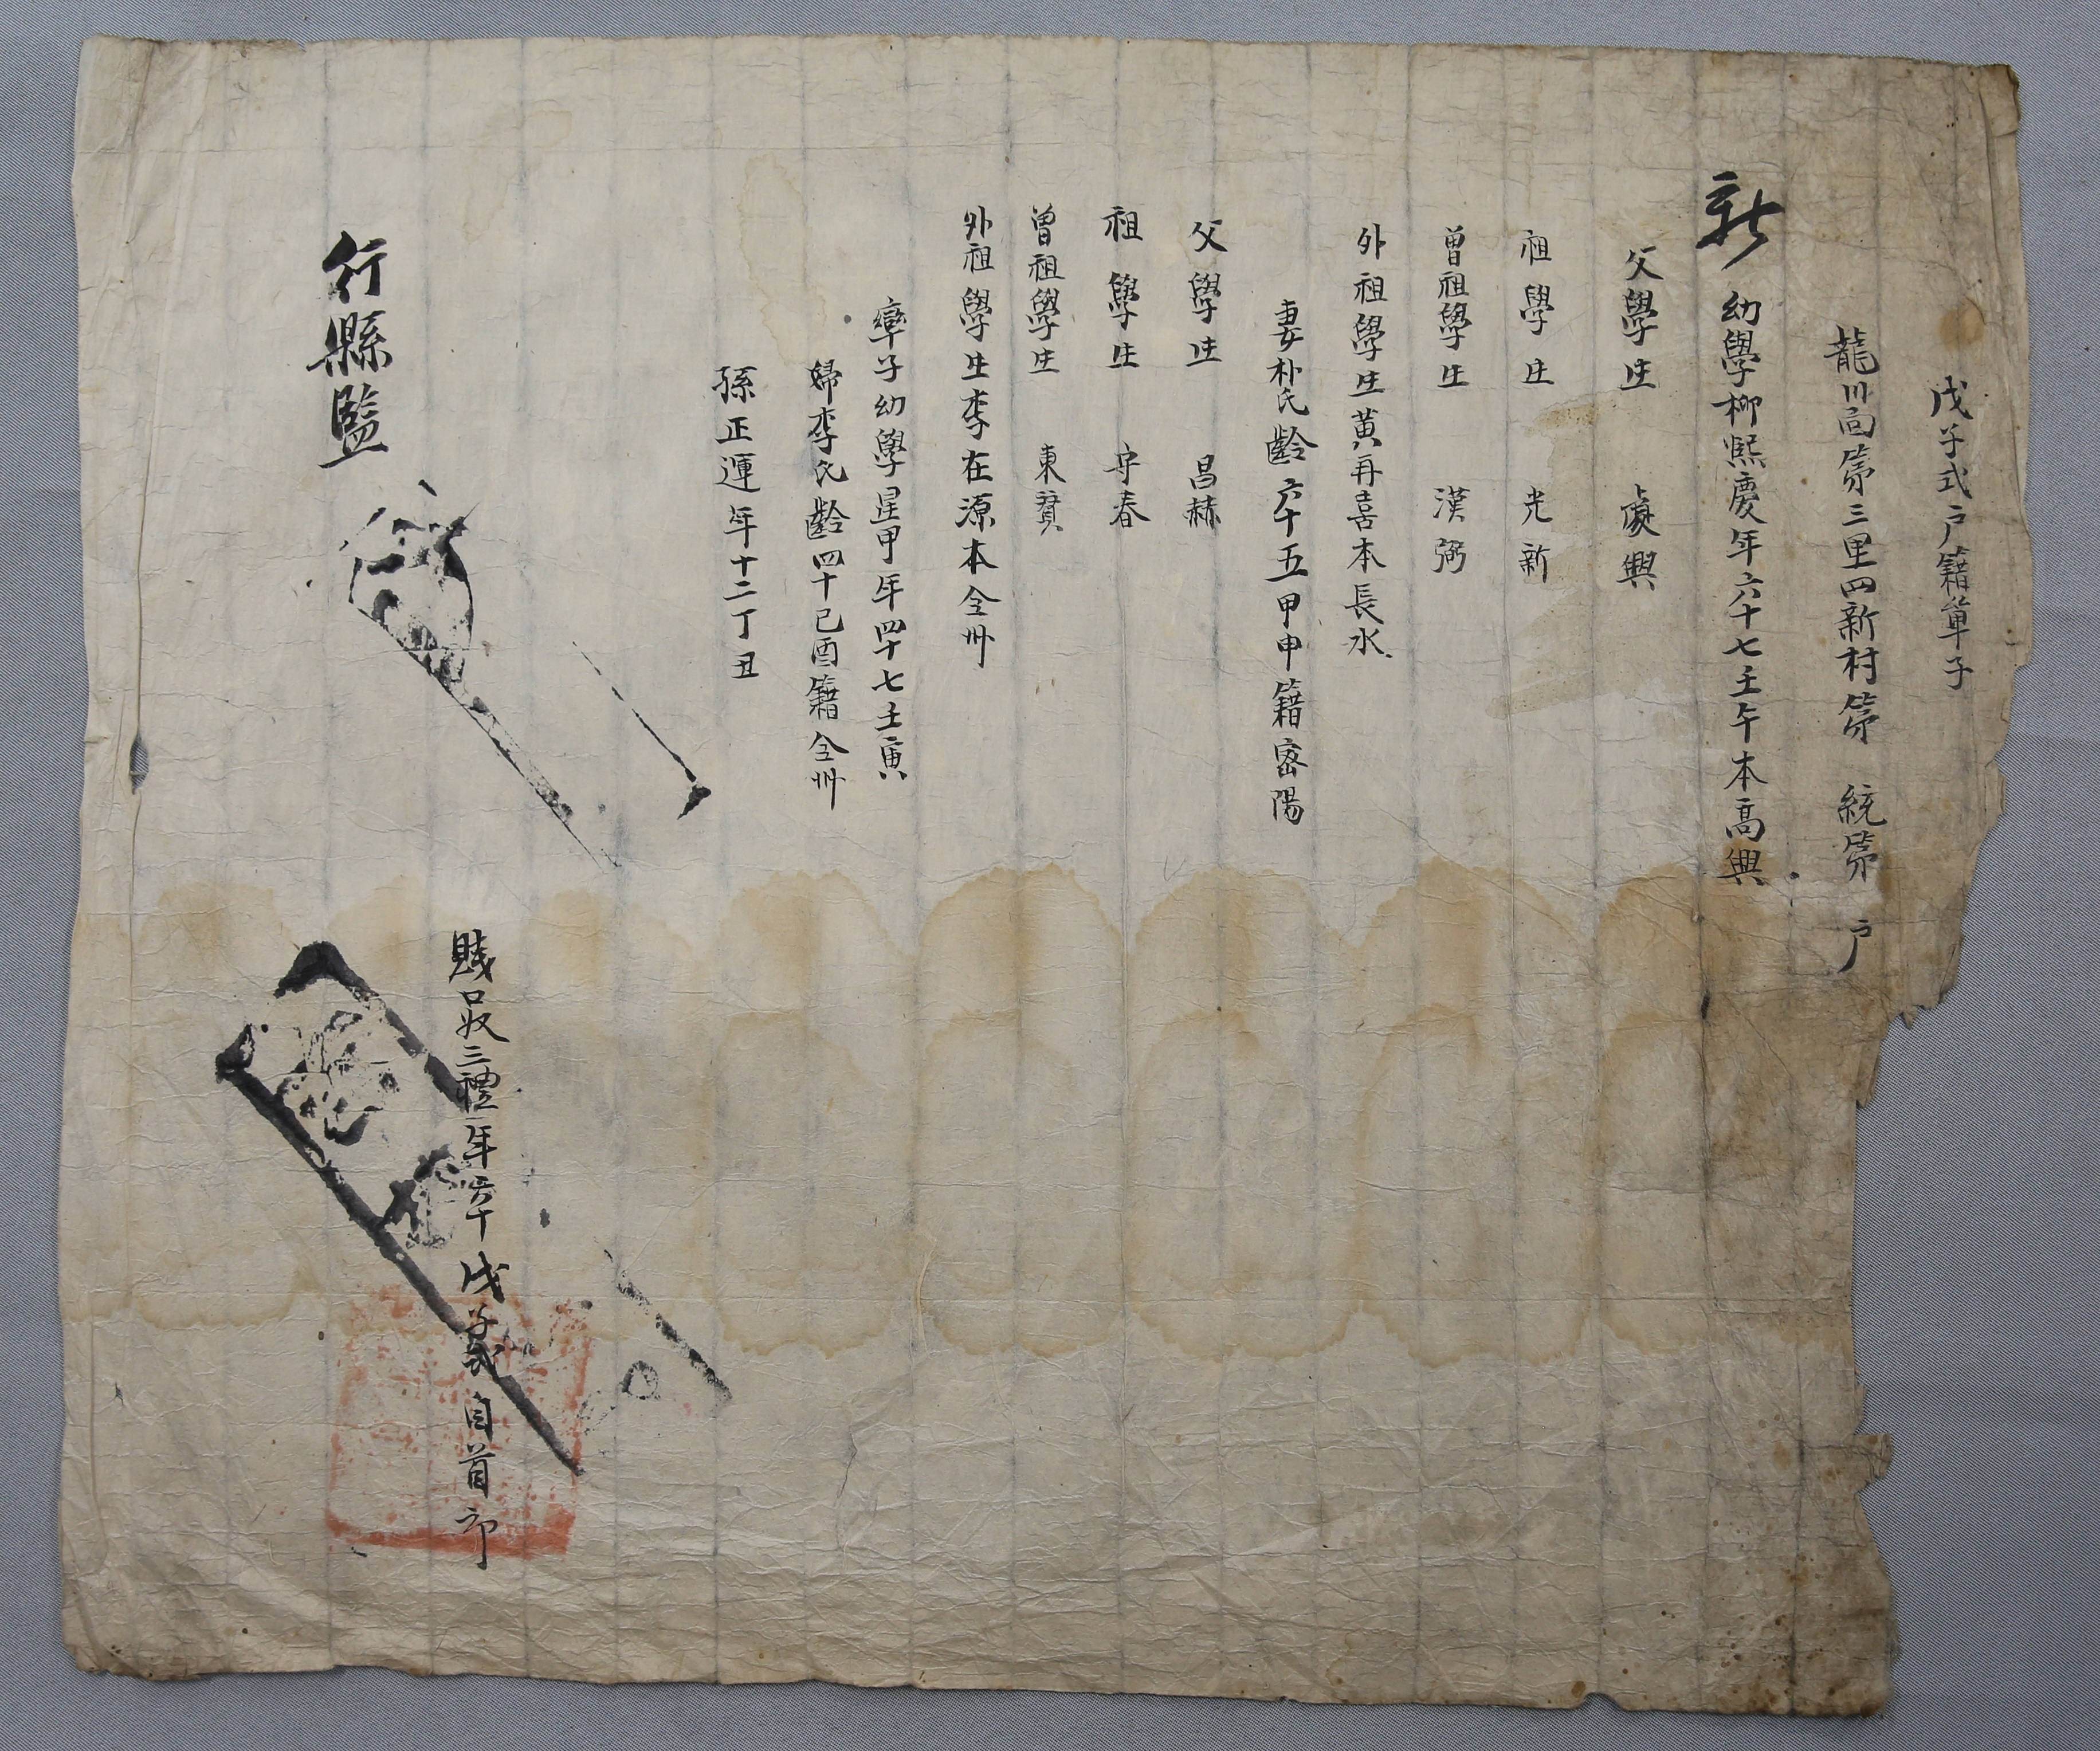 戊子式户籍單子
龍川面第三里四新村第　統第　户
新　幼學柳熙慶年六十七壬午本高興
父學生　處興
祖學生　光新
曾祖學生　漢弼
外祖學生黃再喜本長水
妻朴氏齡六十五甲申籍密陽
父學生　昌赫
祖學生　守春
曾祖學生　東贇
外祖學生李在源本全州
率子幼學星甲年四十七壬寅
婦李氏齡四十己酉籍全州
孫正運年十二丁丑
賤口奴三禮年六十戊子式自首印
行縣監